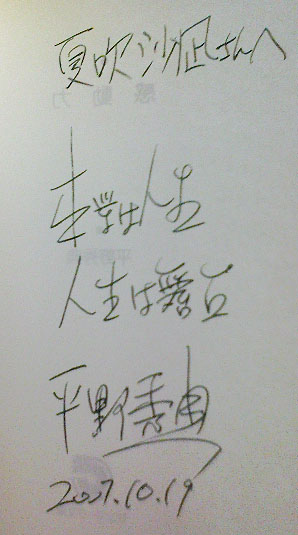 夏吹沙凪さんへ
本学は人生
人生は舞台
平野秀典
2007.10.19